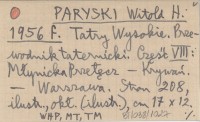 PARYSKI Witold H.
1956 r. Tatry Wysokie. Prze-
wodnik taternicki. Część VIII:
Młynicka Przełęcz — Krywań.
— Warszawa. Stron 208,
ilustr., okł. (ilustr.), cm 17 x 12.
WHP, MT, TM